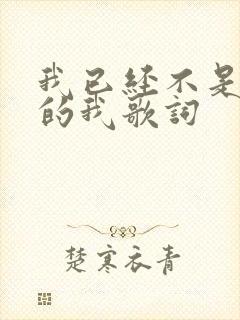 我已经不是
的我歌詞
楚寒衣青